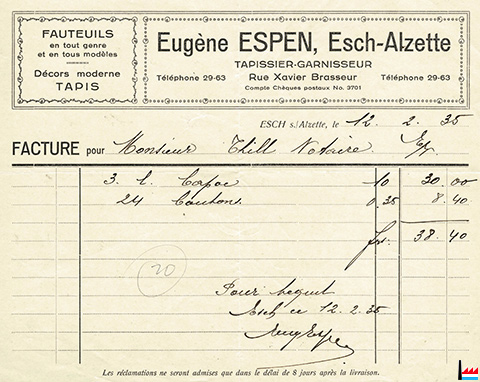 FAUTEUILS
en tout genre
et en tous modèles
Décors moderne
TAPIS
Eugène ESPEN, Esch-Alzette
TAPISSIER-GARNISSEUR
Téléphone 29-63 Rue Xavier Brasseur Téléphone 29-63
Compte Chèques postaux No. 3701
ESCH s./Alzette, le 12. 2. 35
FACTURE pour Monsieur Thill Notaire
3. l. Capoc 10 30.00
24 0.35 8.40
frs. 38.40
20
Pour acquit
Esch ce 12.2.35
Les réclamations ne seront admises que dans le délai de 8 jours après la livraison.